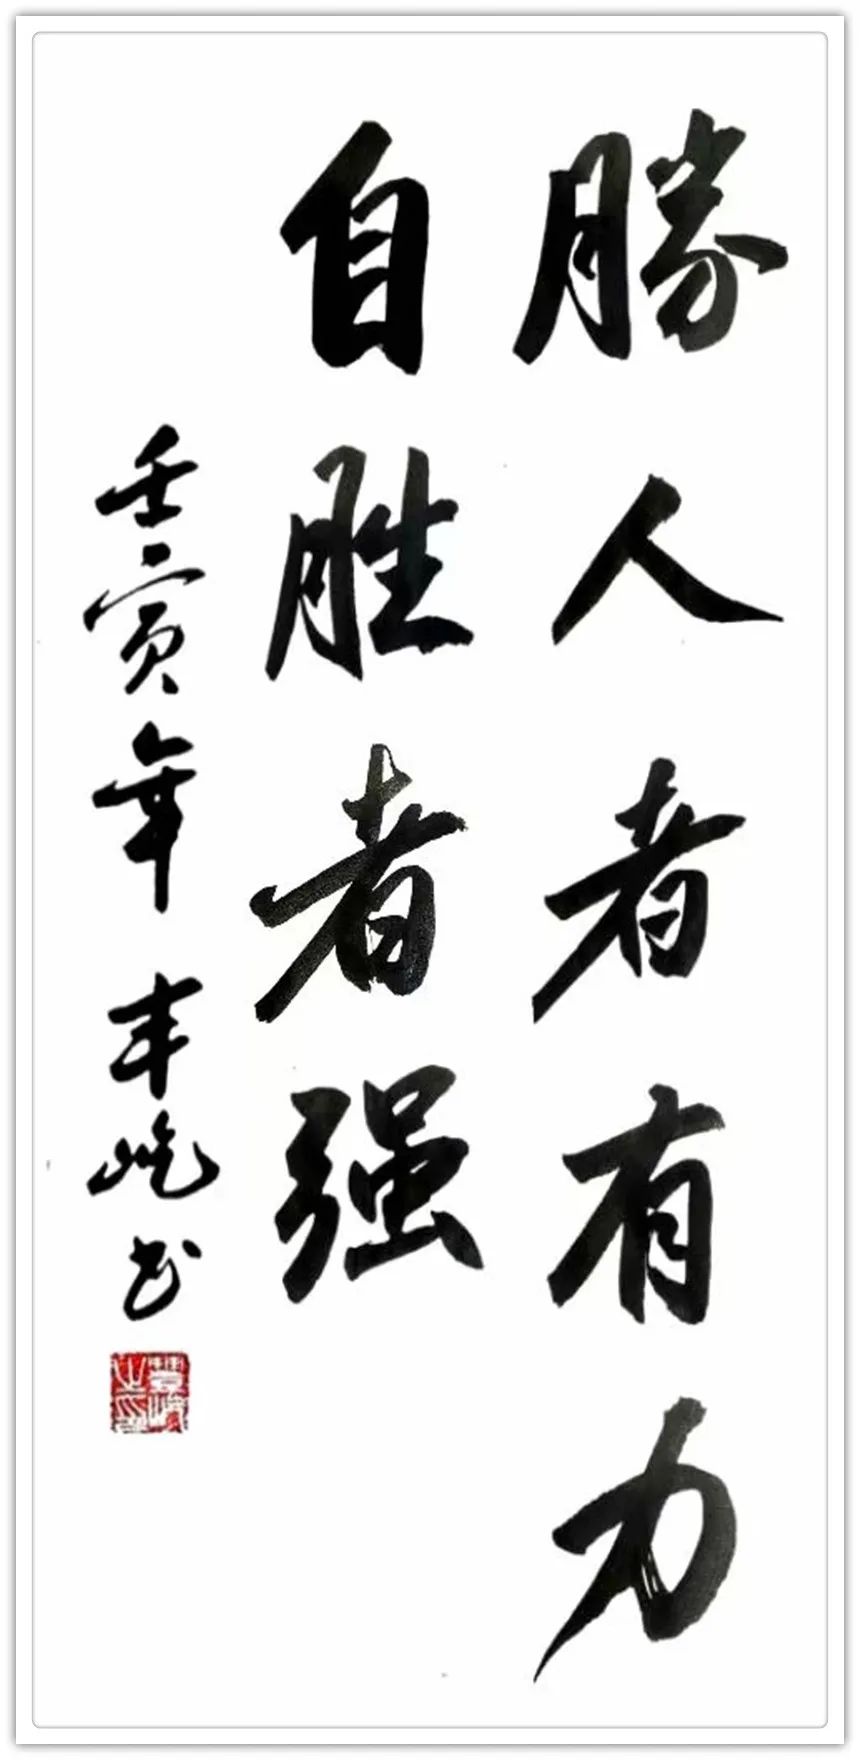 勝人者有力
自胜者强
壬寅年 丰屹书